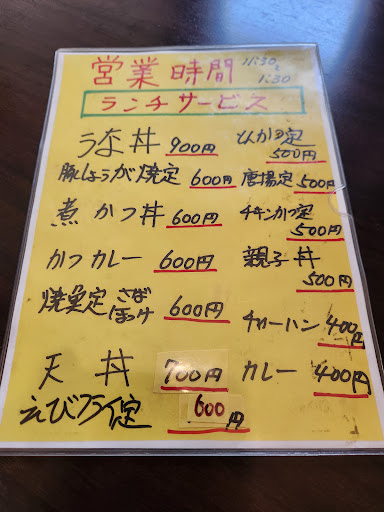 営業時間 11:30〜1:30
ランチサービス
うな丼 900円
豚しょうが焼定 600円
煮かつ丼 600円
かつカレー 600円
焼魚定 さば ほっけ 600円
天丼 700円
えびフライ定 600円
とんかつ定 500円
唐揚定 500円
チキンかつ定 500円
親子丼 500円
チャーハン 400円
カレー 400円